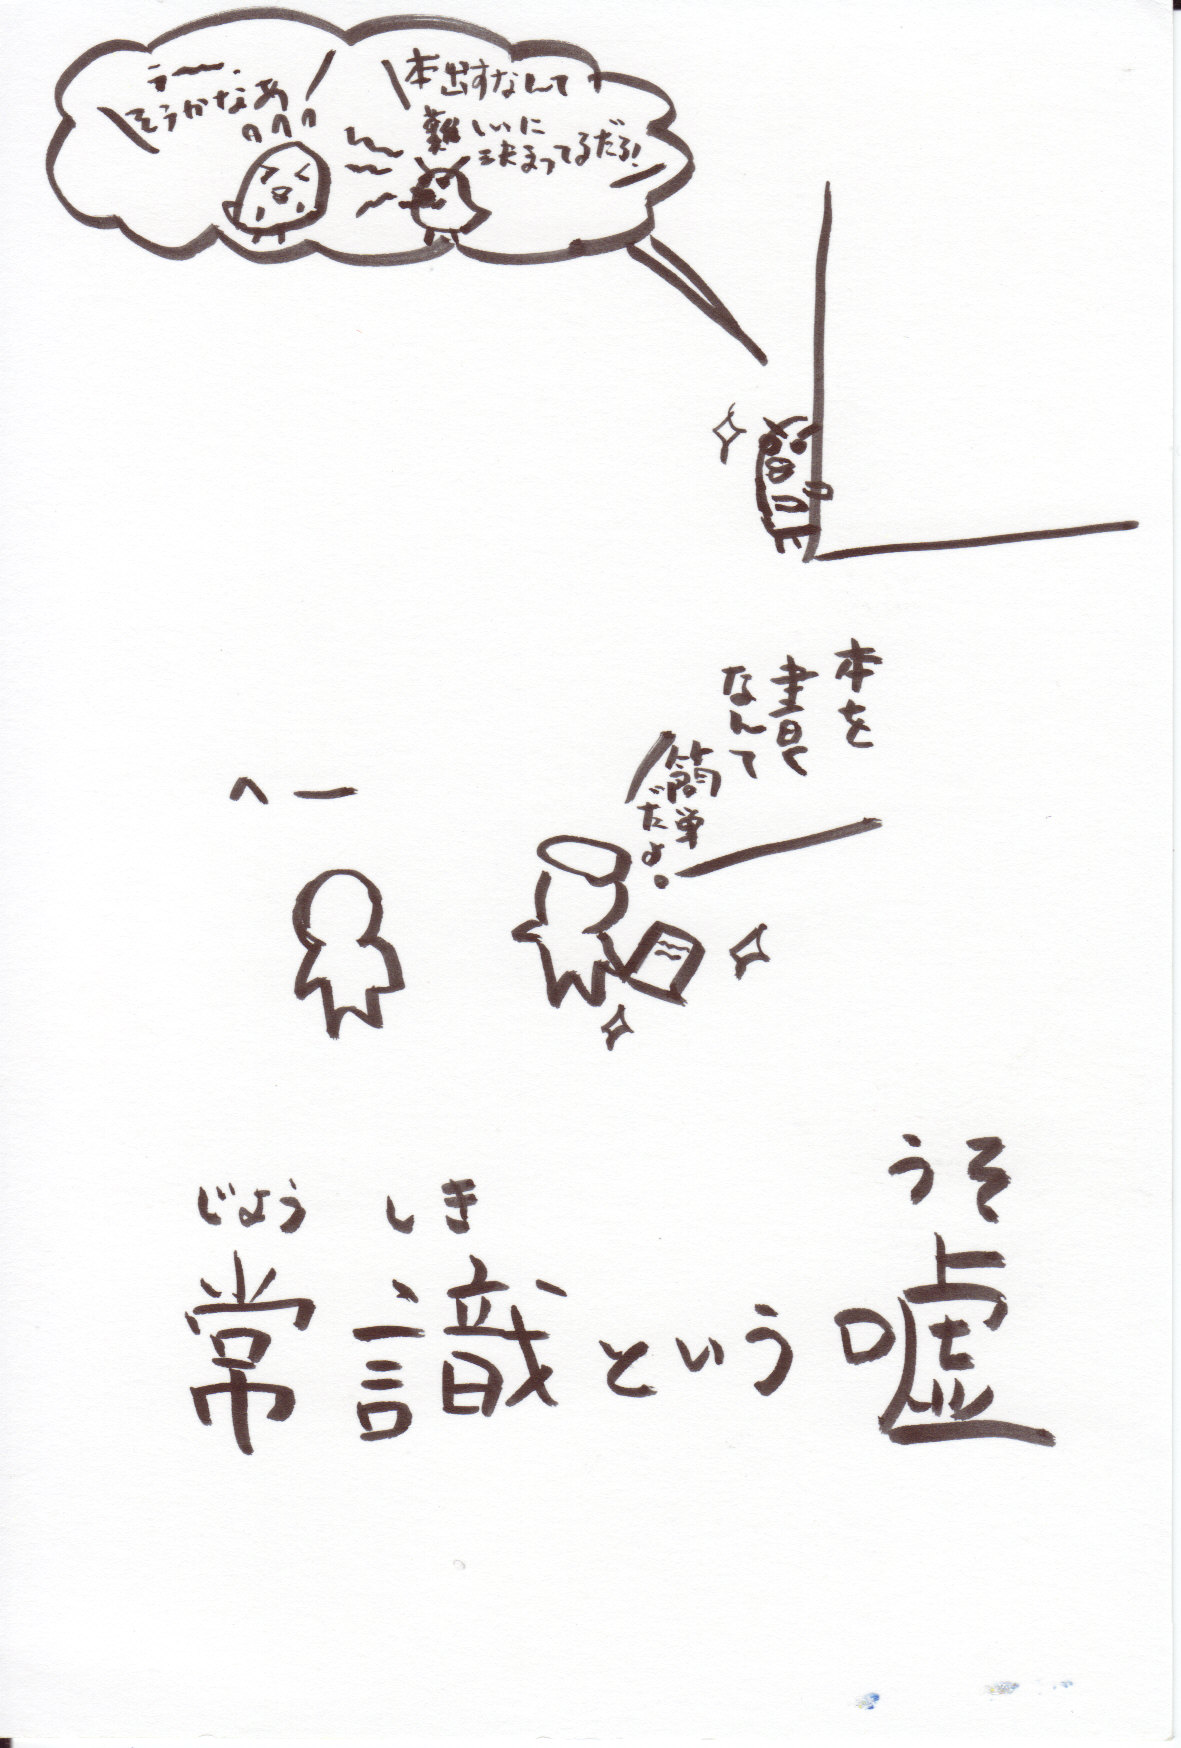 うーー
そうかなあ
本出すなんて
難しいに
決まってるだろ!
本を
書く
なんて
簡単
だよ。
へー
じょう しき うそ
常識という嘘